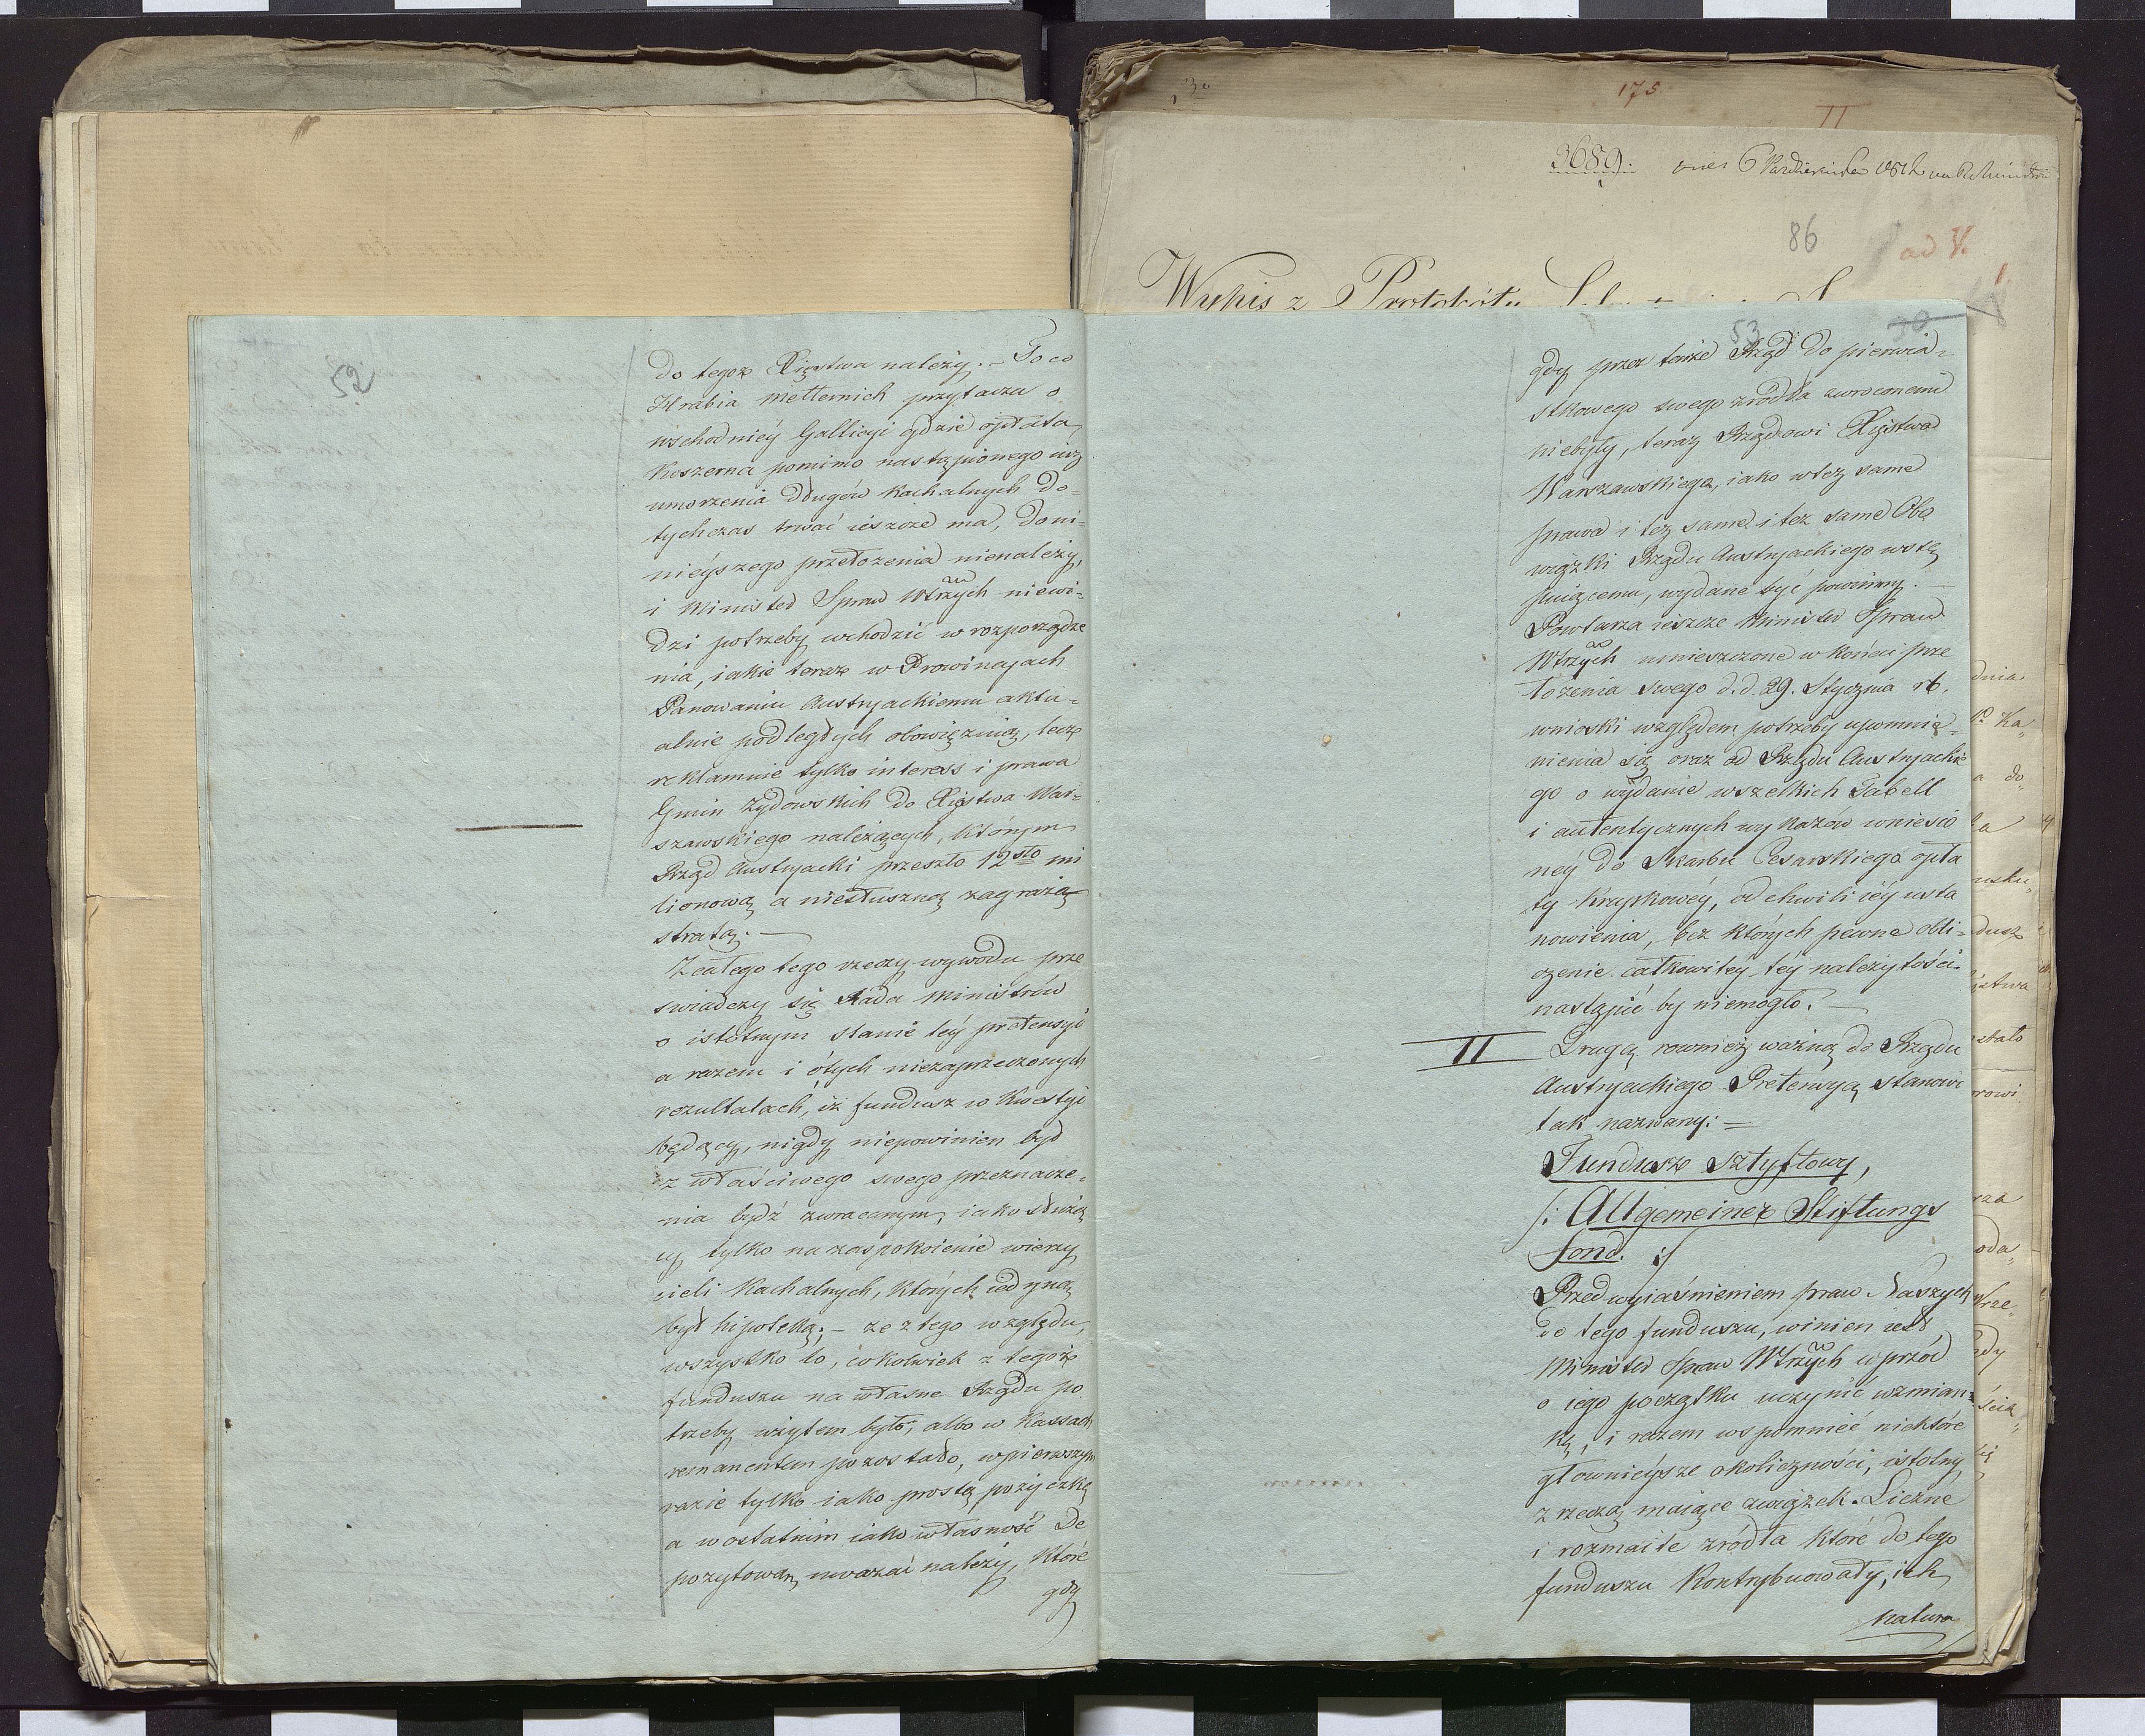 52
do tegoż Xięstwa należy. – To co
Hrabia Metternich przytacza o
wschodniéy Gallicyi gdzie opłata
Koszerna pomimo nastąpionego iuż
umorzenia długów kachalnych do=
tychczas trwać ieszcze ma, do ni=
nieyszego przełożenia nienależy,
i Minister Spraw Wtrzych niewi=
dzi potrzeby wchodzić w rozporządze
nia, iakie teraz w Prowincyach
Panowaniu Austryackiemu aktu=
alnie podległych obowięzuią, lecz
reklamuie tylko interess i prawa
Gmin Żydowskich do Xięstwa War=
szawskiego należących, którym
Rząd Austryacki przeszło 12sto mi
lionową a niesłuszną zagraża
stratą. —
Z całego tego rzeczy wywodu prze
swiadczy się Rada Ministrów
o istotnym stanie téy pretensyi
a razem i o tych niezaprzeczonych
rezultatach, iż fundusz w kwestyi
będący, nigdy niepowinien był
z właściwego swego przeznacze=
nia bydź zwracanym, iako służą
cy tylko na zaspokoienie wierzy
cieli Kachalnych, których iedyną
był hipoteką; – że z tego względu,
wszystko to, cokolwiek z tegoż
funduszu na własne Rządu po
trzeby użytem było, albo w Kassach
remanentem pozostało, w pierwszym
razie tylko iako prostą pożyczkę
a w ostatnim iako własność De
pozytową uważać należy, które
gdy
175
II
3689.
86
ad V.
Wypis z Protokółu
53
gdy przez tenże Rząd do pierwia=
stkowego swego zródła zwroconemi
niebyły, teraz Rządowi Xięstwa
Warszawskiego, iako w też same
prawa i też same i też same Obo
wiązki Rządu Austryackiego wstę
puiącemu, wydane być powinny. —
Powtarza ieszcze Minister Spraw
Wtrzych umieszczone w końcu prze
łożenia swego d. d. 29. Stycznia rb.
wnioski względem potrzeby upomnie=
nienia się oraz od Rządu Austryackie
go o wydanie wszelkich Tabell
i autentycznych wykazów wniesio
néy do Skarbu Cesarskiego opła
ty Krupkowéy, od chwili iéy usta
nowienia, bez których pewne obli=
czenie całkowitéy téy należytości
nastąpić by niemogło. —
II Drugą rownież ważną do Rządu
Austryackiego Pretensyą stanowi
tak nazwany: =
Fundusz Sztyftowy,
/: Allgemeiner Stiftungs
fond. :/
Przed wyiaśnieniem praw Naszych
do tego funduszu, winien iest
Minister Spraw Wtrzych wprzód
o iego początku uczynić wzmian=
kę, i razem wspomnieć niektóre
głównieysze okoliczności, istotny
z rzeczą maiące związek. Liczne
i rozmaite zródła które do tego
funduszu kontrybuowały, ich
natura